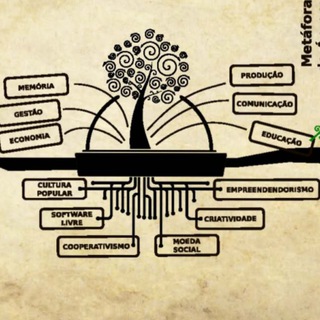 Metáfora
MEMÓRIA
GESTÃO
ECONOMIA
PRODUÇÃO
COMUNICAÇÃO
EDUCAÇÃO
CULTURA
POPULAR
SOFTWARE
LIVRE
COOPERATIVISMO
EMPREENDENDORISMO
CRIATIVIDADE
MOEDA
SOCIAL